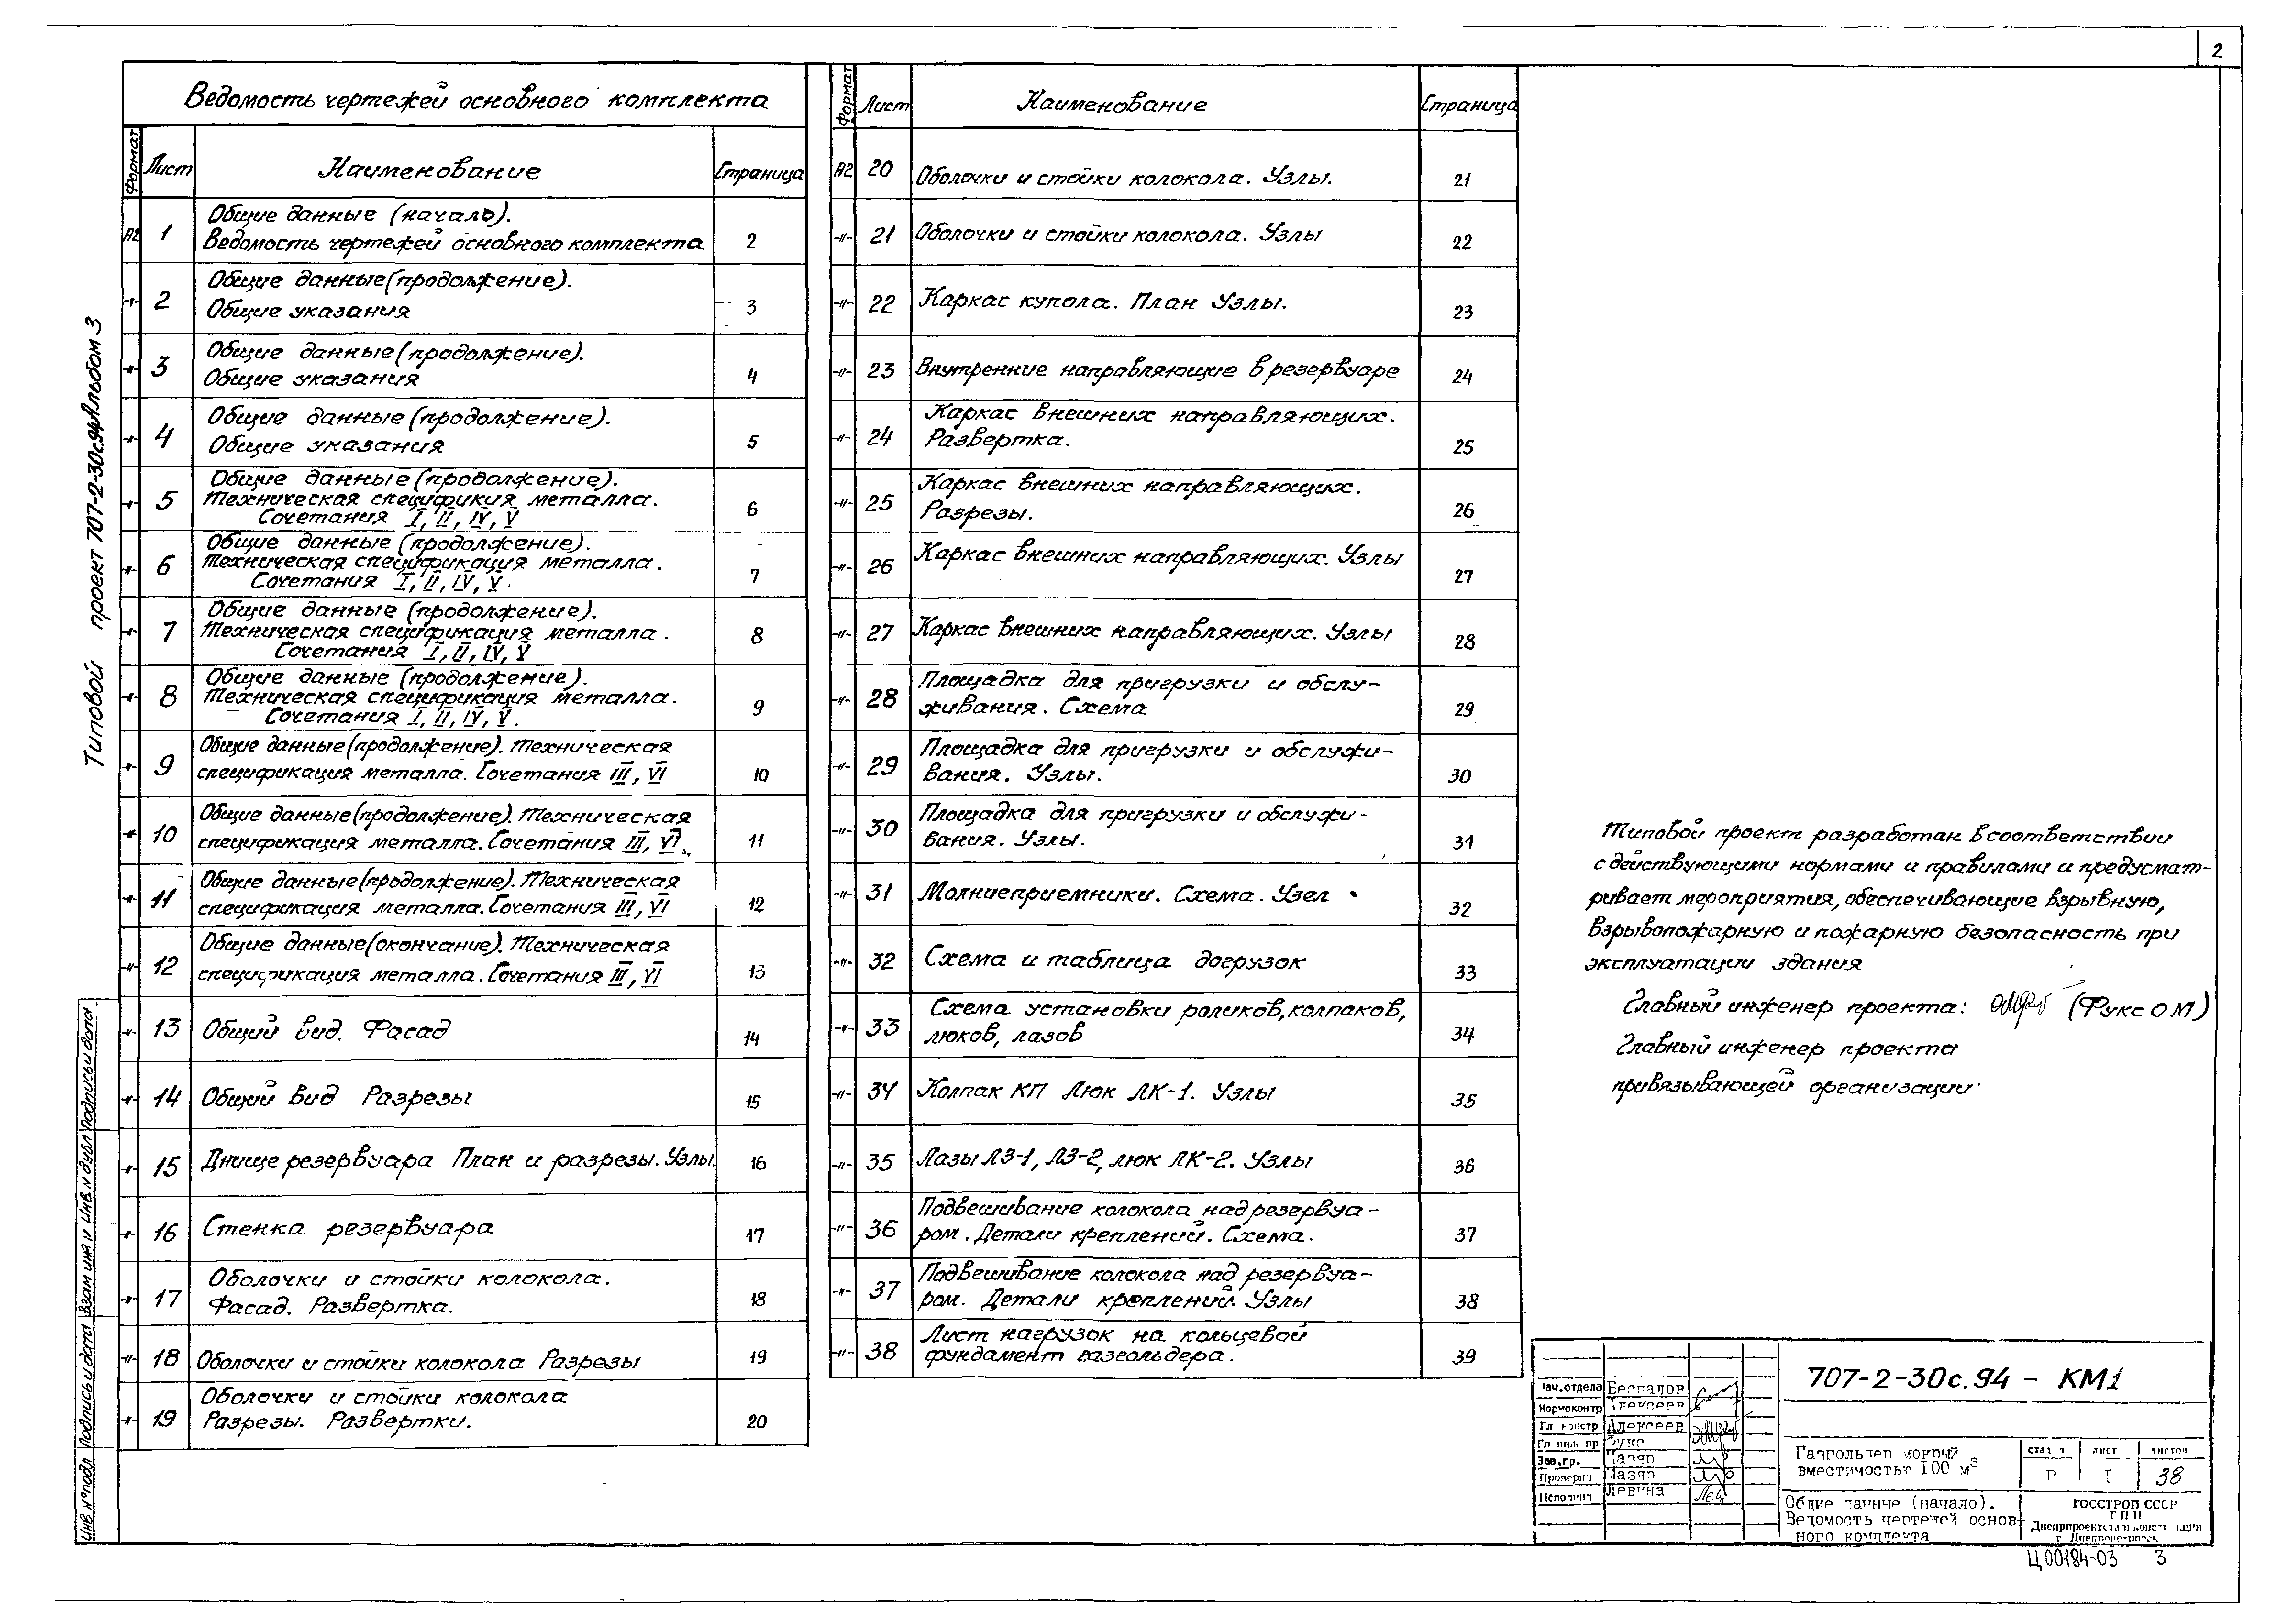 2
Типовой проект 707-2-30с.94 Альбом 3
Ведомость чертежей основного комплекта
Формат Лист Наименование Страница
А2 1 Общие данные (начало).
Ведомость чертежей основного комплекта 2
-"- 2 Общие данные (продолжение).
Общие указания 3
-"- 3 Общие данные (продолжение).
Общие указания 4
-"- 4 Общие данные (продолжение).
Общие указания 5
-"- 5 Общие данные (продолжение).
Техническая спецификия металла.
Сочетания I, II, IV, V 6
-"- 6 Общие данные (продолжение).
Техническая спецификация металла.
Сочетания I, II, IV, V. 7
-"- 7 Общие данные (продолжение).
Техническая спецификация металла.
Сочетания I, II, IV, V 8
-"- 8 Общие данные (продолжение).
Техническая спецификация металла.
Сочетания I, II, IV, V. 9
-"- 9 Общие данные (продолжение). Техническая
спецификация металла. Сочетания III, VI 10
-"- 10 Общие данные (продолжение). Техническая
спецификация металла. Сочетания III, VI. 11
-"- 11 Общие данные (продолжение). Техническая
спецификация металла. Сочетания III, VI 12
-"- 12 Общие данные (окончание). Техническая
спецификация металла. Сочетания III, VI 13
-"- 13 Общий вид. Фасад 14
-"- 14 Общий вид Разрезы 15
-"- 15 Днище резервуара План и разрезы. Узлы. 16
-"- 16 Стенка резервуара 17
-"- 17 Оболочки и стойки колокола.
Фасад. Развертка. 18
-"- 18 Оболочки и стойки колокола Разрезы 19
-"- 19 Оболочки и стойки колокола
Разрезы. Развертки. 20
Формат Лист Наименование Страница
А2 20 Оболочки и стойки колокола. Узлы. 21
-"- 21 Оболочки и стойки колокола. Узлы 22
-"- 22 Каркас купола. План Узлы. 23
-"- 23 Внутренние направляющие в резервуаре 24
-"- 24 Каркас внешних направляющих.
Развертка. 25
-"- 25 Каркас внешних направляющих.
Разрезы. 26
-"- 26 Каркас внешних направляющих. Узлы 27
-"- 27 Каркас внешних направляющих. Узлы 28
-"- 28 Площадка для пригрузки и обслу-
живания. Схема 29
-"- 29 Площадка для пригрузки и обслужи-
вания. Узлы. 30
-"- 30 Площадка для пригрузки и обслужи-
вания. Узлы. 31
-"- 31 Молниеприемники. Схема. Узел 32
-"- 32 Схема и таблица догрузок 33
-"- 33 Схема установки роликов, колпаков,
люков, лазов 34
-"- 34 Колпак КП Люк ЛК-1. Узлы 35
-"- 35 Лазы ЛЗ-1, ЛЗ-2, люк ЛК-2. Узлы 36
-"- 36 Подвешивание колокола над резервуа-
ром. Детали креплений. Схема. 37
-"- 37 Подвешивание колокола над резервуа-
ром. Детали креплений. Узлы 38
-"- 38 Лист нагрузок на кольцевой
фундамент газгольдера. 39
Типовой проект разработан в соответствии
с действующими нормами и правилами и предусмат-
ривает мероприятия, обеспечивающие взрывную,
взрывопожарную и пожарную безопасность при
эксплуатации здания
Главный инженер проекта: (Фукс О М)
Главный инженер проекта
привязывающей организации
Инв. № подл Подпись и дата Взам инв N Инв. N дубл Подпись и дата
707-2-30с.94 - КМ1
Нач.отдела Беспалов
Нормоконтр Алексеев
Гл констр Алексеев
Гл инж пр Фукс
Зав.гр. Лазяр
Проверил Лазяр
Исполнил Левина
Газгольдер мокрый
вместимостью 100 м3
стадия лист листов
Р 1 38
Общие данные (начало).
Ведомость чертежей основ-
ного комплекта
ГОССТРОЙ СССР
ГПИ
г. Днепропетровск
Ц00184-03 3